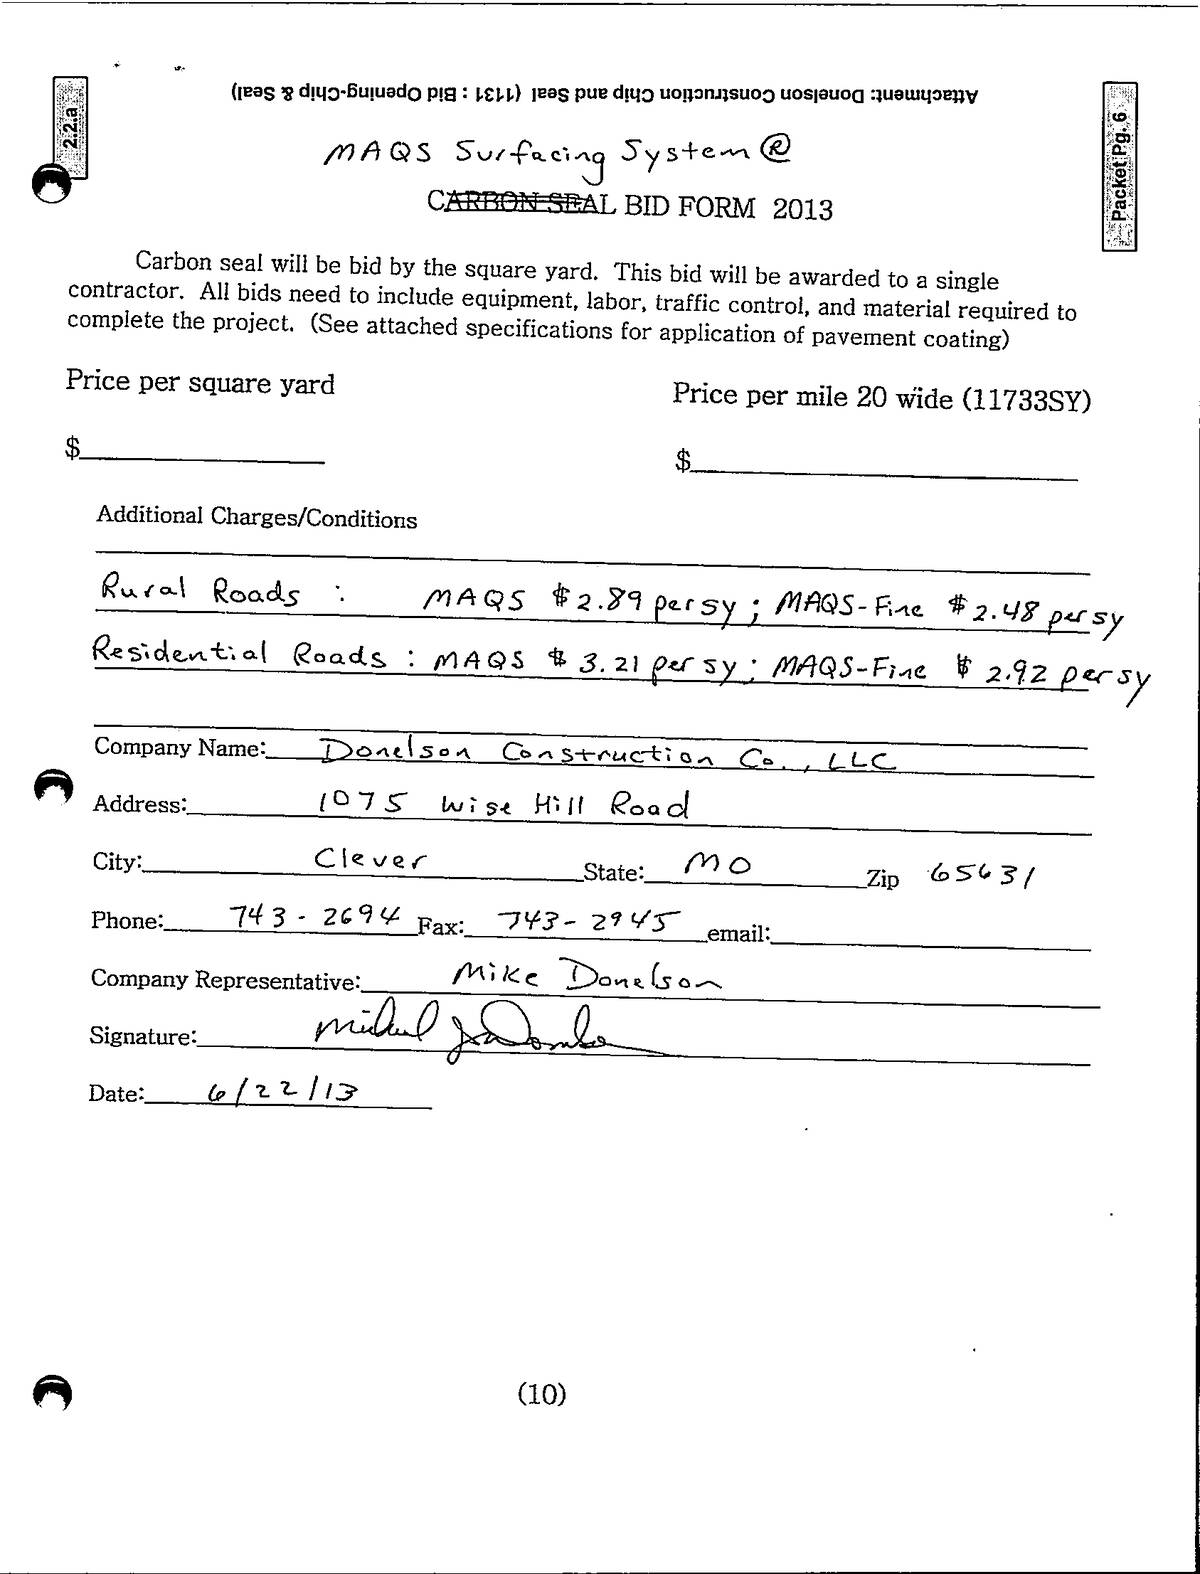 Attachment: Donelson Construction Chip and Seal (1131 : Bid Opening-Chip & Seal)
2.2.a
Packet Pg. 6
MAQS Surfacing System ®
CARBON SEAL BID FORM 2013
Carbon seal will be bid by the square yard. This bid will be awarded to a single
contractor. All bids need to include equipment, labor, traffic control, and material required to
complete the project. (See attached specifications for application of pavement coating)
Price per square yard Price per mile 20 wide (11733SY)
$ $
Additional Charges/Conditions
Rural Roads : MAQS $2.89 per sy ; MAQS-Fine $2.48 per sy
Residential Roads : MAQS $ 3.21 per sy ; MAQS-Fine $ 2.92 per sy
Company Name: Donelson Construction Co., LLC
Address: 1075 Wise Hill Road
City: Clever State: MO Zip 65631
Phone: 743-2694 Fax: 743-2945 email:
Company Representative: Mike Donelson
Signature:
Date: 6/22/13
(10)